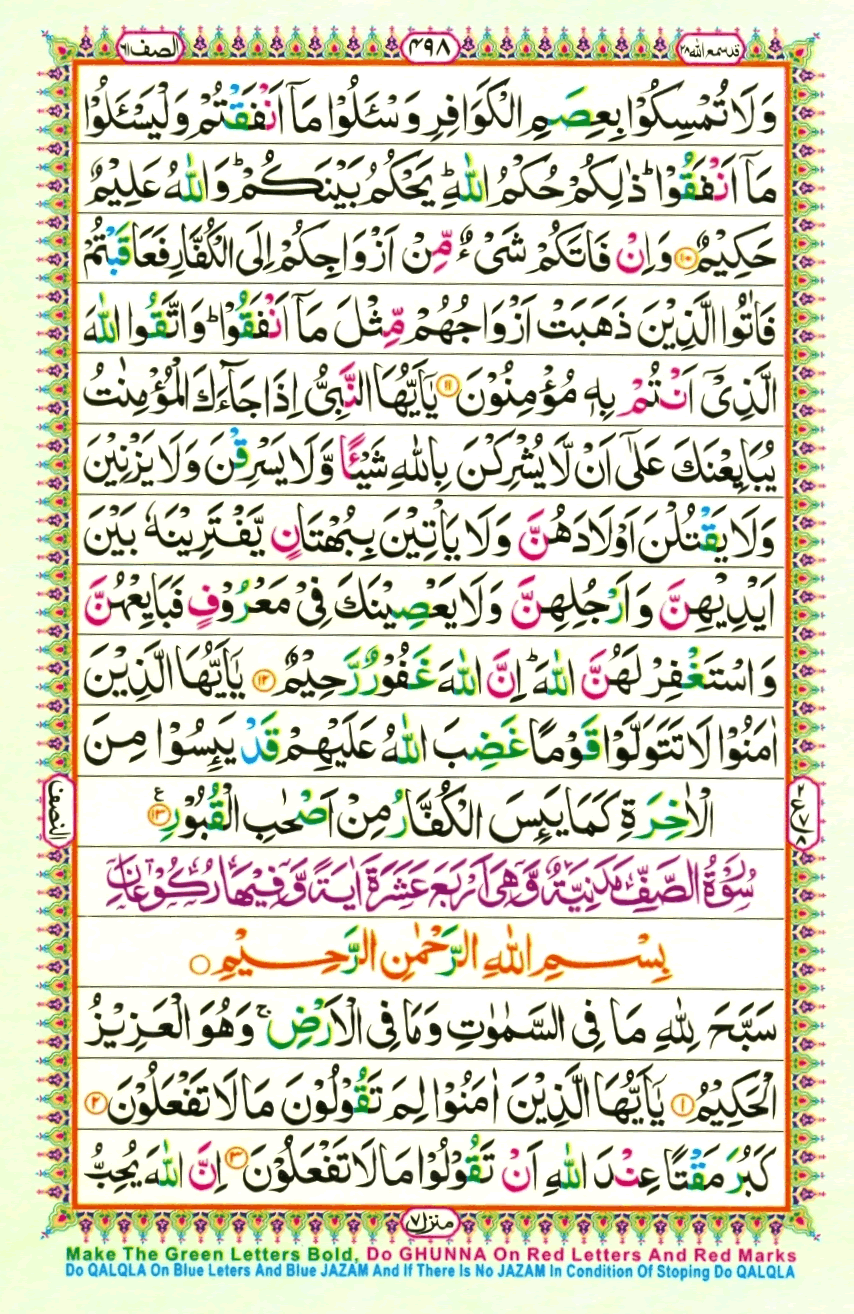 قد سمع الله ٢٨ ٤٩٨ الصف ٦١
وَلَا تُمْسِكُوْا بِعِصَمِ الْكَوَافِرِ وَسْـَٔلُوْا مَاۤ اَنْفَقْتُمْ وَلْيَسْـَٔلُوْا
مَاۤ اَنْفَقُوْا ؕ ذٰلِكُمْ حُكْمُ اللّٰهِ ؕ يَحْكُمُ بَيْنَكُمْ ؕ وَاللّٰهُ عَلِيْمٌ
حَكِيْمٌ ۱۰ وَاِنْ فَاتَكُمْ شَىْءٌ مِّنْ اَزْوَاجِكُمْ اِلَى الْكُفَّارِ فَعَاقَبْتُمْ
فَاٰتُوا الَّذِيْنَ ذَهَبَتْ اَزْوَاجُهُمْ مِّثْلَ مَاۤ اَنْفَقُوْا ؕ وَاتَّقُوا اللّٰهَ
الَّذِىْۤ اَنْتُمْ بِهٖ مُؤْمِنُوْنَ ۱۱ يٰۤاَيُّهَا النَّبِىُّ اِذَا جَآءَكَ الْمُؤْمِنٰتُ
يُبَايِعْنَكَ عَلٰٓى اَنْ لَّا يُشْرِكْنَ بِاللّٰهِ شَيْـًٔا وَّلَا يَسْرِقْنَ وَلَا يَزْنِيْنَ
وَلَا يَقْتُلْنَ اَوْلَادَهُنَّ وَلَا يَاْتِيْنَ بِبُهْتَانٍ يَّفْتَرِيْنَهٗ بَيْنَ
اَيْدِيْهِنَّ وَاَرْجُلِهِنَّ وَلَا يَعْصِيْنَكَ فِىْ مَعْرُوْفٍ فَبَايِعْهُنَّ
وَاسْتَغْفِرْ لَهُنَّ اللّٰهَ ؕ اِنَّ اللّٰهَ غَفُوْرٌ رَّحِيْمٌ ۱۲ يٰۤاَيُّهَا الَّذِيْنَ
اٰمَنُوْا لَا تَتَوَلَّوْا قَوْمًا غَضِبَ اللّٰهُ عَلَيْهِمْ قَدْ يَئِسُوْا مِنَ
الْاٰخِرَةِ كَمَا يَئِسَ الْكُفَّارُ مِنْ اَصْحٰبِ الْقُبُوْرِ ۱۳ ع
النصف
سُوْرَةُ الصَّفِّ مَدَنِيَّةٌ وَّهِىَ اَرْبَعَ عَشَرَةَ اٰيَةً وَّفِيْهَا رُكُوْعَانِ
بِسْمِ اللّٰهِ الرَّحْمٰنِ الرَّحِيْمِ
سَبَّحَ لِلّٰهِ مَا فِى السَّمٰوٰتِ وَمَا فِى الْاَرْضِ ۚ وَهُوَ الْعَزِيْزُ
الْحَكِيْمُ ۱ يٰۤاَيُّهَا الَّذِيْنَ اٰمَنُوْا لِمَ تَقُوْلُوْنَ مَا لَا تَفْعَلُوْنَ ۲
كَبُرَ مَقْتًا عِنْدَ اللّٰهِ اَنْ تَقُوْلُوْا مَا لَا تَفْعَلُوْنَ ۳ اِنَّ اللّٰهَ يُحِبُّ
منزل ٧
Make The Green Letters Bold, Do GHUNNA On Red Letters And Red Marks
Do QALQLA On Blue Leters And Blue JAZAM And If There Is No JAZAM In Condition Of Stoping Do QALQLA